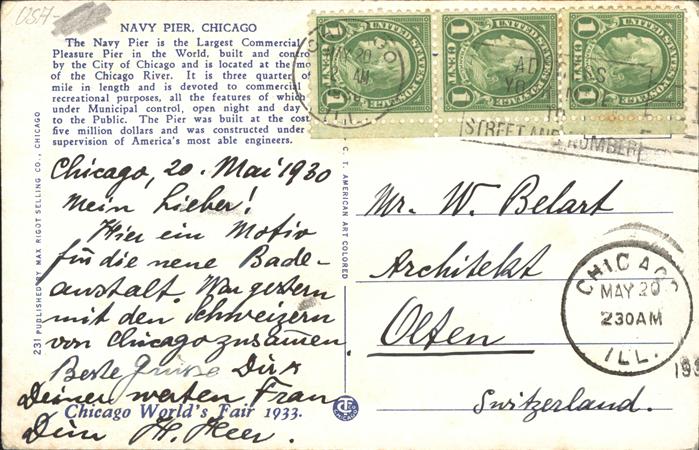 USA-
NAVY PIER, CHICAGO
The Navy Pier is the Largest Commercial
Pleasure Pier in the World, built and contro
by the City of Chicago and is located at the mo
of the Chicago River. It is three quarter of
mile in length and is devoted to commercial
recreational purposes, all the features of which
under Municipal control, open night and day
to the Public. The Pier was built at the cost
five million dollars and was constructed under
supervision of America's most able engineers.
Chicago, 20. Mai 1930
Mein Lieber!
Hier ein Motiv
für die neue Bade-
anstalt. War gestern
mit den Schweizern
von Chicago zusammen.
Beste Grüsse Dir &
Deiner werten Frau
Chicago World's Fair 1933.
Dein H. Heer.
231 PUBLISHED BY MAX RIGOT SELLING CO., CHICAGO
C. T. AMERICAN ART COLORED
UNITED STATES POSTAGE
1 CENT 1
UNITED STATES POSTAGE
1 CENT 1
UNITED STATES POSTAGE
1 CENT 1
MAY 20
AM
ILL.
STREET AND NUMBER
Mr. W. Belart
Architekt
Olten
Switzerland.
CHICAGO
MAY 20
230AM
ILL.
193